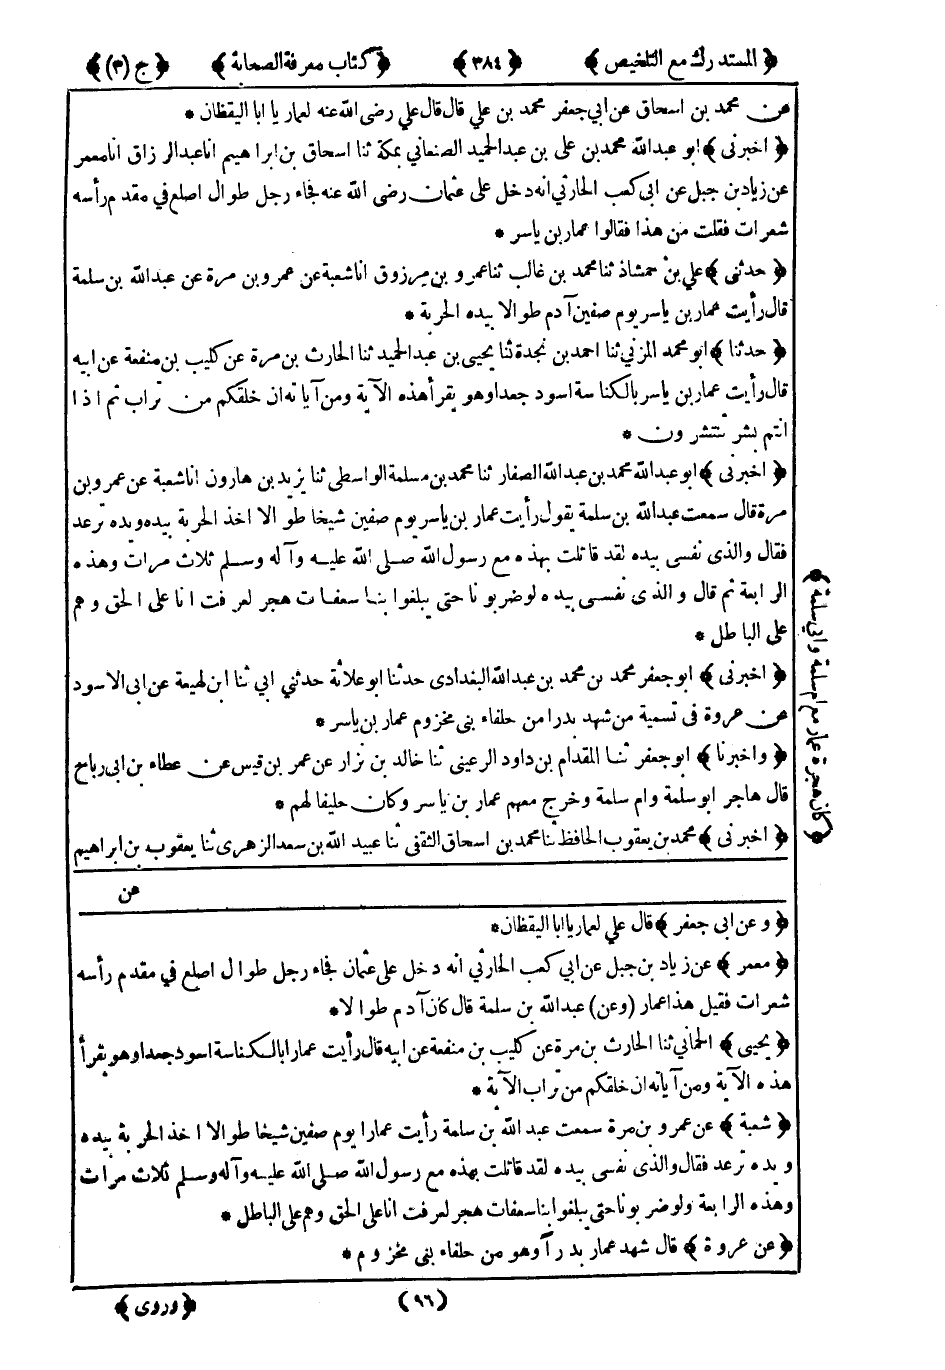 ﴿ المستدرك مع التلخيص ﴾ ﴿ ٣٨٤ ﴾ ﴿ كتاب معرفة الصحابة ﴾ ﴿ ج (٣) ﴾
عن محمد بن اسحاق عن ابي جعفر محمد بن علي قال قال علي رضى الله عنه لعمار يا ابا اليقظان *
﴿ اخبرنى ﴾ ابو عبدالله محمد بن على بن عبدالحميد الصنعاني بمكة ثنا اسحاق بن ابراهيم انا عبدالرزاق انا معمر
عن زياد بن جبل عن ابى كعب الحارثي انه دخل على عثمان رضى الله عنه فجاء رجل طوال اصلع في مقدم رأسه
شعرات فقلت من هذا فقالوا عمار بن ياسر *
﴿ حدثنى ﴾ علي بن حمشاذ ثنا محمد بن غالب ثنا عمرو بن مرزوق انا شعبة عن عمرو بن مرة عن عبدالله بن سلمة
قال رأيت عمار بن ياسر يوم صفين آدم طوالا بيده الحربة *
﴿ حدثنا ﴾ ابو محمد المزني ثنا احمد بن نجدة ثنا يحيى بن عبدالحميد ثنا الحارث بن مرة عن كليب بن منفعة عن ابيه
قال رأيت عمار بن ياسر بالكناسة اسود جعدا وهو يقرأ هذه الآية ومن آياته ان خلقكم من تراب ثم اذا
انتم بشر تنتشرون *
﴿ اخبرنى ﴾ ابو عبدالله محمد بن عبدالله الصفار ثنا محمد بن مسلمة الواسطى ثنا يزيد بن هارون انا شعبة عن عمرو بن
مرة قال سمعت عبدالله بن سلمة يقول رأيت عمار بن ياسر يوم صفين شيخا طوالا اخذ الحربة بيده ويده ترعد
فقال والذى نفسى بيده لقد قاتلت بهذه مع رسول الله صلى الله عليه وآله وسلم ثلاث مرات وهذه
الرابعة ثم قال والذى نفسى بيده لو ضربونا حتى يبلغوا بنا سعفات هجر لعرفت انا على الحق وهم
على الباطل *
﴿ اخبرنى ﴾ ابو جعفر محمد بن محمد بن عبدالله البغدادى حدثنا ابو علاثة حدثني ابي ثنا ابن لهيعة عن ابى الاسود
عن عروة فى تسمية من شهد بدرا من حلفاء بنى مخزوم عمار بن ياسر *
﴿ واخبرنا ﴾ ابو جعفر ثنا المقدام بن داود الرعينى ثنا خالد بن نزار عن عمر بن قيس عن عطاء بن ابى رباح
قال هاجر ابو سلمة وام سلمة وخرج معهم عمار بن ياسر وكان حليفا لهم *
﴿ اخبرنى ﴾ محمد بن يعقوب الحافظ ثنا محمد بن اسحاق الثقفى ثنا عبيد الله بن سعد الزهرى ثنا يعقوب بن ابراهيم
عن
﴿ كان هجرة عمار مع ام سلمة وابي سلمة ﴾
﴿ وعن ابى جعفر ﴾ قال علي لعمار يا ابا اليقظان *
﴿ معمر ﴾ عن زياد بن جبل عن ابي كعب الحارثي انه دخل على عثمان فجاء رجل طوال اصلع في مقدم رأسه
شعرات فقيل هذا عمار (وعن) عبدالله بن سلمة قال كان آدم طوالا *
﴿ يحيى ﴾ الحماني ثنا الحارث بن مرة عن كليب بن منفعة عن ابيه قال رأيت عمارا بالكناسة اسود جعدا وهو يقرأ
هذه الآية ومن آياته ان خلقكم من تراب الآية *
﴿ شعبة ﴾ عن عمرو بن مرة سمعت عبد الله بن سلمة رأيت عمارا يوم صفين شيخا طوالا اخذ الحربة بيده
ويده ترعد فقال والذى نفسى بيده لقد قاتلت بهذه مع رسول الله صلى الله عليه وآله وسلم ثلاث مرات
وهذه الرابعة ولو ضربونا حتى يبلغوا بنا سعفات هجر لعرفت انا على الحق وهم على الباطل *
﴿ عن عروة ﴾ قال شهد عمار بدرا وهو من حلفاء بنى مخزوم *
(٩٦) ﴿ وروى ﴾